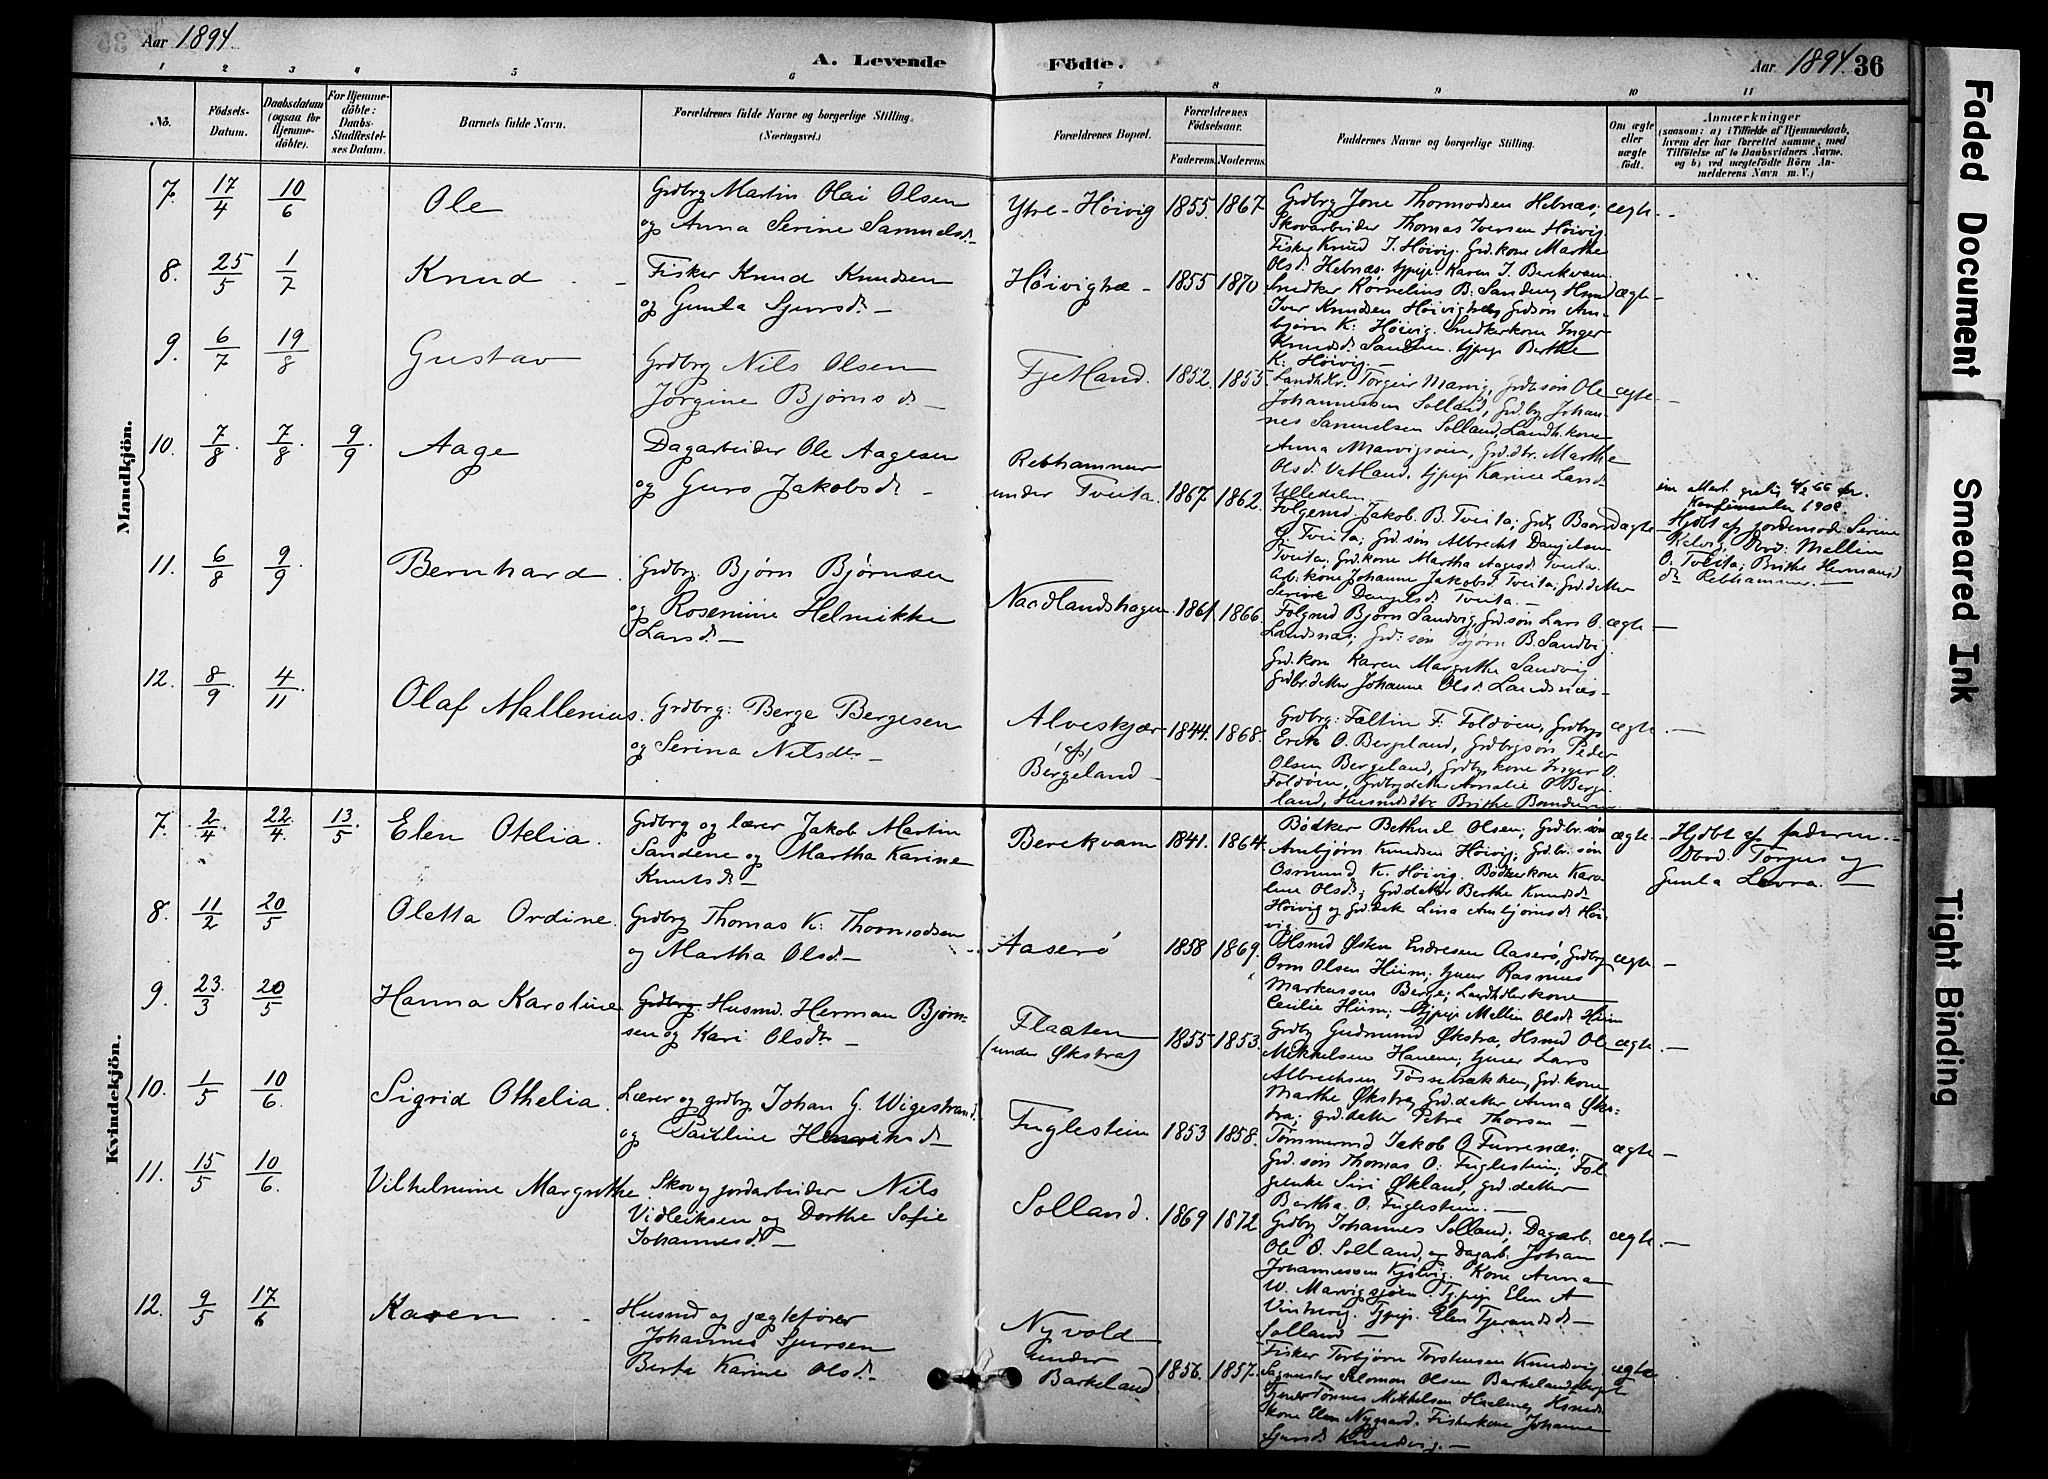 Aar 1894.
A. Levende
Födte.
Aar 1894. 36
1 2 3 4 5 6 7 8 9 10 11
No. Födsels-Datum. Daabsdatum (ogsaa for Hjemme-döbte). For Hjemme-döbte: Daabs-Stadfæstel-ses Datum. Barnets fulde Navn. Forældrenes fulde Navne og borgerlige Stilling (Næringsvei.) Forældrenes Bopæl. Forældrenes Födselsaar. Faderens. Moderens. Faddernes Navne og borgerlige Stilling. Om ægte eller uægte födt. Anmærkninger (saasom: a) i Tilfælde af Hjemmedaab, hvem der har forrettet samme, med Tilföielse af to Daabsvidners Navne. og b) ved uægtefödte Börn An-melderens Navn m. V.)
Mandkjön.
7. 17/4 10/6 Ole
Grdbrg Martin Olai Olsen
og Anna Serine Samuelsd. –
Ytre-Höivig 1855. 1867.
Grdbrg Jone Thormodsen Hebnæs,
Skovarbeider Thomas Iversen Höivig
Fisker Knud I. Höivig. Grd.kone Marthe
Olsd. Hebnæs; tjpige Karen I. Berekvam.
ægte. –
8. 25/5 1/7 Knud
Fisker Knud Knudsen
og Gunla Sjursd. –
Höivigtræ – 1855 1870
Snedker Kornelius B. Sandvig Hsmd
Iver Knudsen Höivigtræ, Grdsøn Am-
bjørn K. Höivig. Snedkerkone Inger
Knudsd. tjpige Berthe
K. Höivig –
ægte –
9. 6/7 19/8 Gustav
Grdbrg Nils Olsen
Jørgine Bjørnsd. –
Fjetland. 1852. 1855.
Landh. Torgeir Marvig, Grdb.søn Ole
Johannessen Solland, Grdbg Johan-
nes Samuelsen Solland, Landh. kone
Anna Marvigsøen, Grd.dtr. Marthe
Olsd. Vatland, tjpige Karine Lard.
Ulledalen –
ægte. –
10. 7/8 7/8 9/9. Aage
Dagarbeider Ole Aagesen
og Guro Jakobsd. –
Rebhammer
under Tveita. 1867. 1862.
Folgemd. Jakob B. Tveita; Grdb. Baard
G. Tveita; Grd.søn Albrecht Danjelsen
Tveita, Grd.kone Martha Aagesd. Tveita.
Arb.kone Johanne Jakobsd. Tveita; Grd.detter
Serine Danjelsd. Tveita. –
ægte
1908
Hjdbt af jordemoder Serine
Kelvig, Dvd: Mallin
O. Tveita; Brithe Hermansd
dr Rebhammer. –
11. 6/8 9/9 Bernhard.
Grdbrg. Bjørn Bjørnsen
og Rosemine Helmikke
Larsd. –
Naadlandshagen. 1861. 1866.
Folgmd Bjørn Sandvig, Grd.søn Lars O.
Landsnæs; Grd: søn Bjørn B. Sandvig.
Grd.kone Karen Margrethe Sandvig
Grdbr.detter Johanne Olsd. Landsnæs –
ægte –
12. 8/9. 4/11 Olaf Mallenius.
Grdbrg: Berge Bergesen
og Serina Nilsdtr –
Alveskjær
(af)
Bergeland – 1844. 1868.
Grdbrg: Faltin F. Foldöen, Grdbrg
Erik O. Bergeland, Grdbrgsøn Peder
Olsen Bergeland, Grdbrg kone Inger O.
Foldöen, Grdbrgdetter Amalie O Berge
land, Husmdsdtr Brithe
ægte. –
Kvindekjön.
7. 2/4. 22/4 13/5. Elen Otelia.
Grdbrg og lærer Jakob Martin
Sandene og Martha Karine
Knutsd. –
Berekvam 1841. 1864.
Bødker Bethuel Olsen; Grdbr.søn
Ambjørn Knudsen Höivig; Grd.br.søn
Osmund K. Höivig. Bødkerkone Karo
line Olsd; Grd.detter Berthe Knudsd.
Höivig og Grd.dett. Lina Ambjørnsd. Höi-
vig –
ægte.
– Hjdbt af faderen. –
Dbvd. Torgus og
Gunla Lovra. –
8. 11/2 20/5 Oletta Ordine.
Grdbrg Thomas K. Thormodsen
og Martha Olsd. –
Aaserö 1858 1869.
Hsmd Østen Endresen Aaserö, Grdbrg
Orm Olsen Hiim; tjener Rasmus
Markussen Berge; Landhdlerkone
Cecilie Hiim; tjpige Mallin Olsd. Hiim
ægte. –
9. 23/3 20/5 Hanna Karoline
Grdbrg. Husmd. Herman Bjørn-
sen og Kari Olsdtr –
Flaaten
(under Økstra) 1855 1853.
Grdbg Gudmund Økstra, Hsmd Ole
Mikkelsen Hauene; tjener Lars
Albrechsen Tøssebrækken, Grd.kone
Marthe Økstra, Grd.detter Anna Øks-
tra; Grd.detter Petra Thorsen –
ægte. –
10. 1/5 10/6. Sigrid Othelia.
Lærer og grdbrg Johan G. Wigestrand.
og Pauline Henriksd. –
Fuglestein 1853 1858.
Tømmermd Jakob O. Furrenæs;
Grd.søn Thomas O. Fuglestein; Fol
genke Siri Økland, Grd.detter
Bertha O. Fuglestein. –
ægte –
11. 15/5 10/6. Vilhelmine Margrethe
Skov og jordarbeider Nils
Vidleiksen og Dorthe Sofie
Johannesd. –
Solland. 1869 1872
Grdbg Johannes Solland; Dagarb.
Ole O. Solland, og Dagarb: Johan
Johannessen Kjölvig. Kone Anna
W. Marvigsjøen. Tjpige Elen A
Tjpige. Elen Tjerandsd –
Solland –
ægte. –
12. 9/5 17/6 Karen
Husmd og jægtefører
Johannes Sjursen
Berte Karine Olsd. –
Nyvold
under
Barkeland 1856. 1857.
Fisker Torbjørn Torstensen Knudsvig.
Sagmester Salomon Olsen Barkeland
Tjener Tønnes Mikkelsen Hsmds
kone Elen Nygaard. Fiskerkone Johanne
Sjursd. Knudsvig. –
ægte
Faded Document
Smeared Ink
Tight Binding